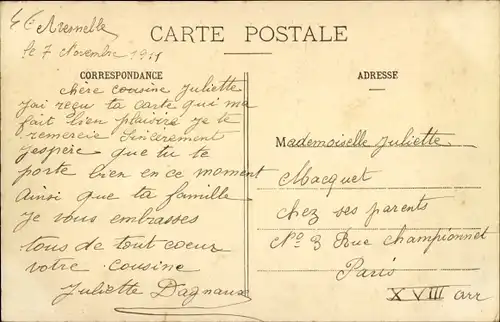 CARTE POSTALE
le 7 Novembre 1911
CORRESPONDANCE
chère cousine Juliette
J'ai reçu ta carte qui ma
fait bien plaisire je te
remercie Sincèrement
J'espère que tu te
porte bien en ce moment
ainsi que ta famille
Je vous embrasses
tous de tout coeur
votre cousine
Juliette Dagnaux
ADRESSE
Mademoiselle Juliette
Macquet
chez ses parents
No 3 Rue championnet
Paris
XVIII arr